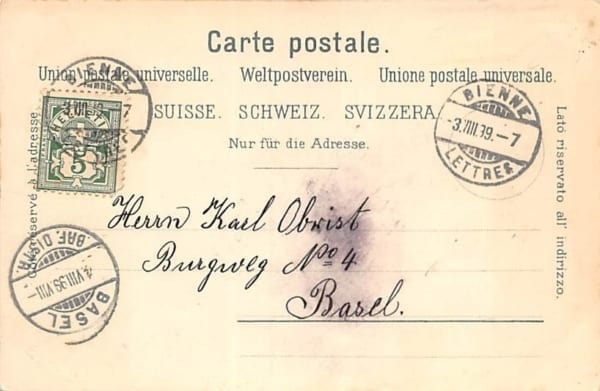 Carte postale.
Union postale universelle. Weltpostverein. Unione postale universale.
SUISSE. SCHWEIZ. SVIZZERA.
Nur für die Adresse.
BIENNE
HELVETIA
5
BIENNE
-3.VIII.99.-7
LETTRES
réservé à l'adresse
Lató riservato all' indirizzo.
Herrn Karl Obrist
Burgweg No 4
Basel.
BRF. DISTR.
4.VIII.99.VIII-
BASEL